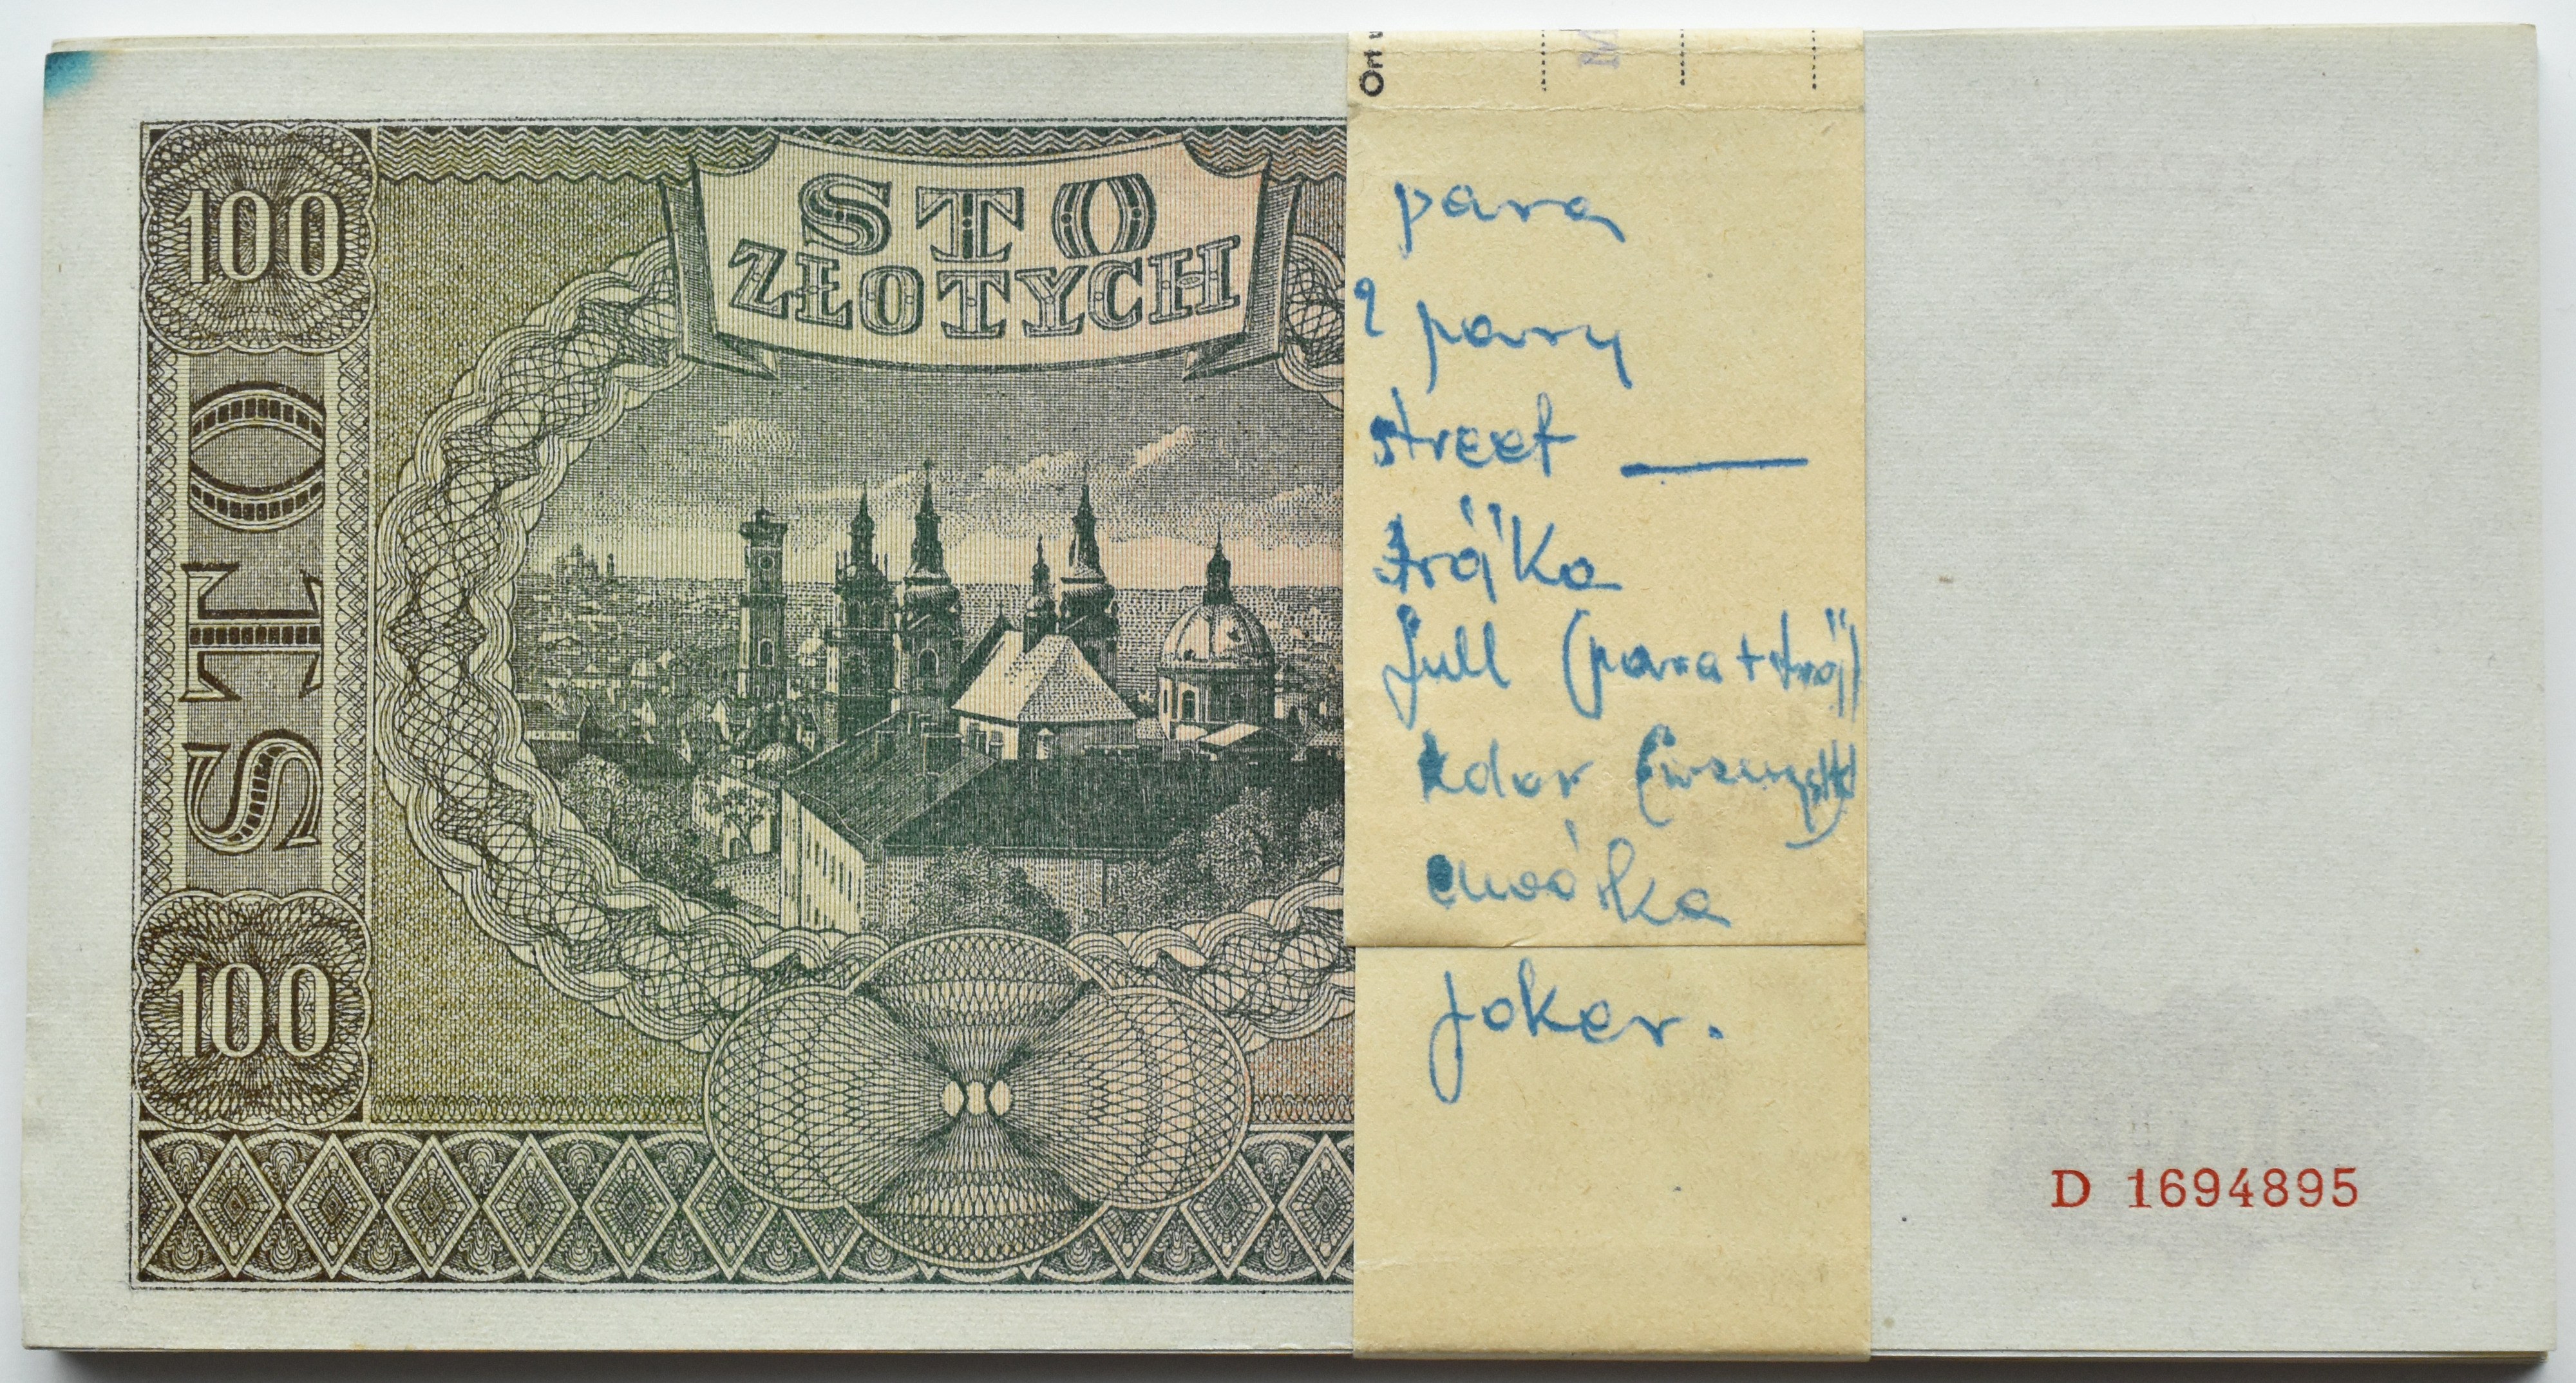 100
STO
100
STO
ZŁOTYCH
Ort
para
2 pary
street —
trójka
full (para + trój)
kolor (wszystk)
czwórka
joker.
D 1694895